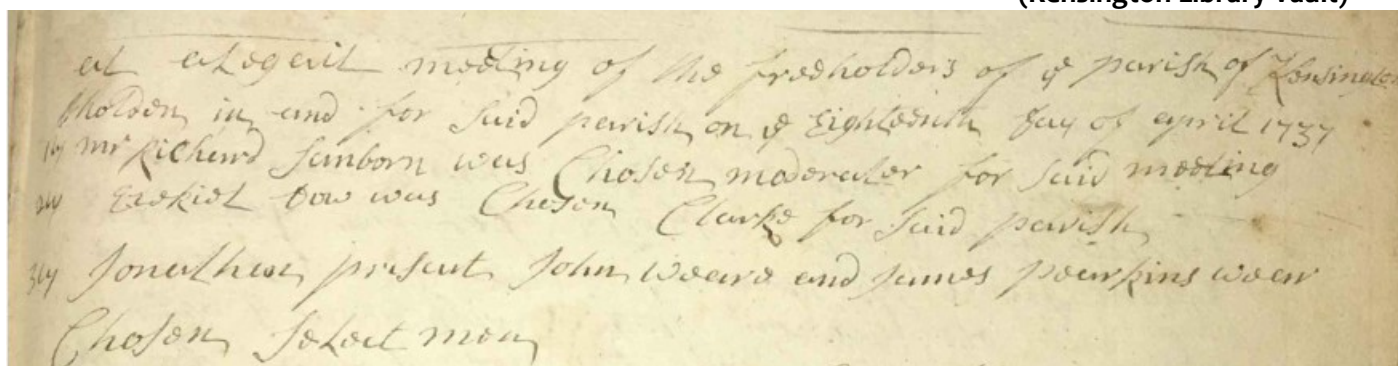 (Kensington Library Vault)
at a Legail meeting of the freeholders of ye parish of Kensington
holden in and for said parish on ye Eighteenth day of april 1737
1ly mr Richard Sanborn was Chosen moderater for said meeting
2ly Ezekiel Dow was Chosen Clarke for said parish
3ly Jonathan prescut John weare and James pearkins wear
Chosen Select men